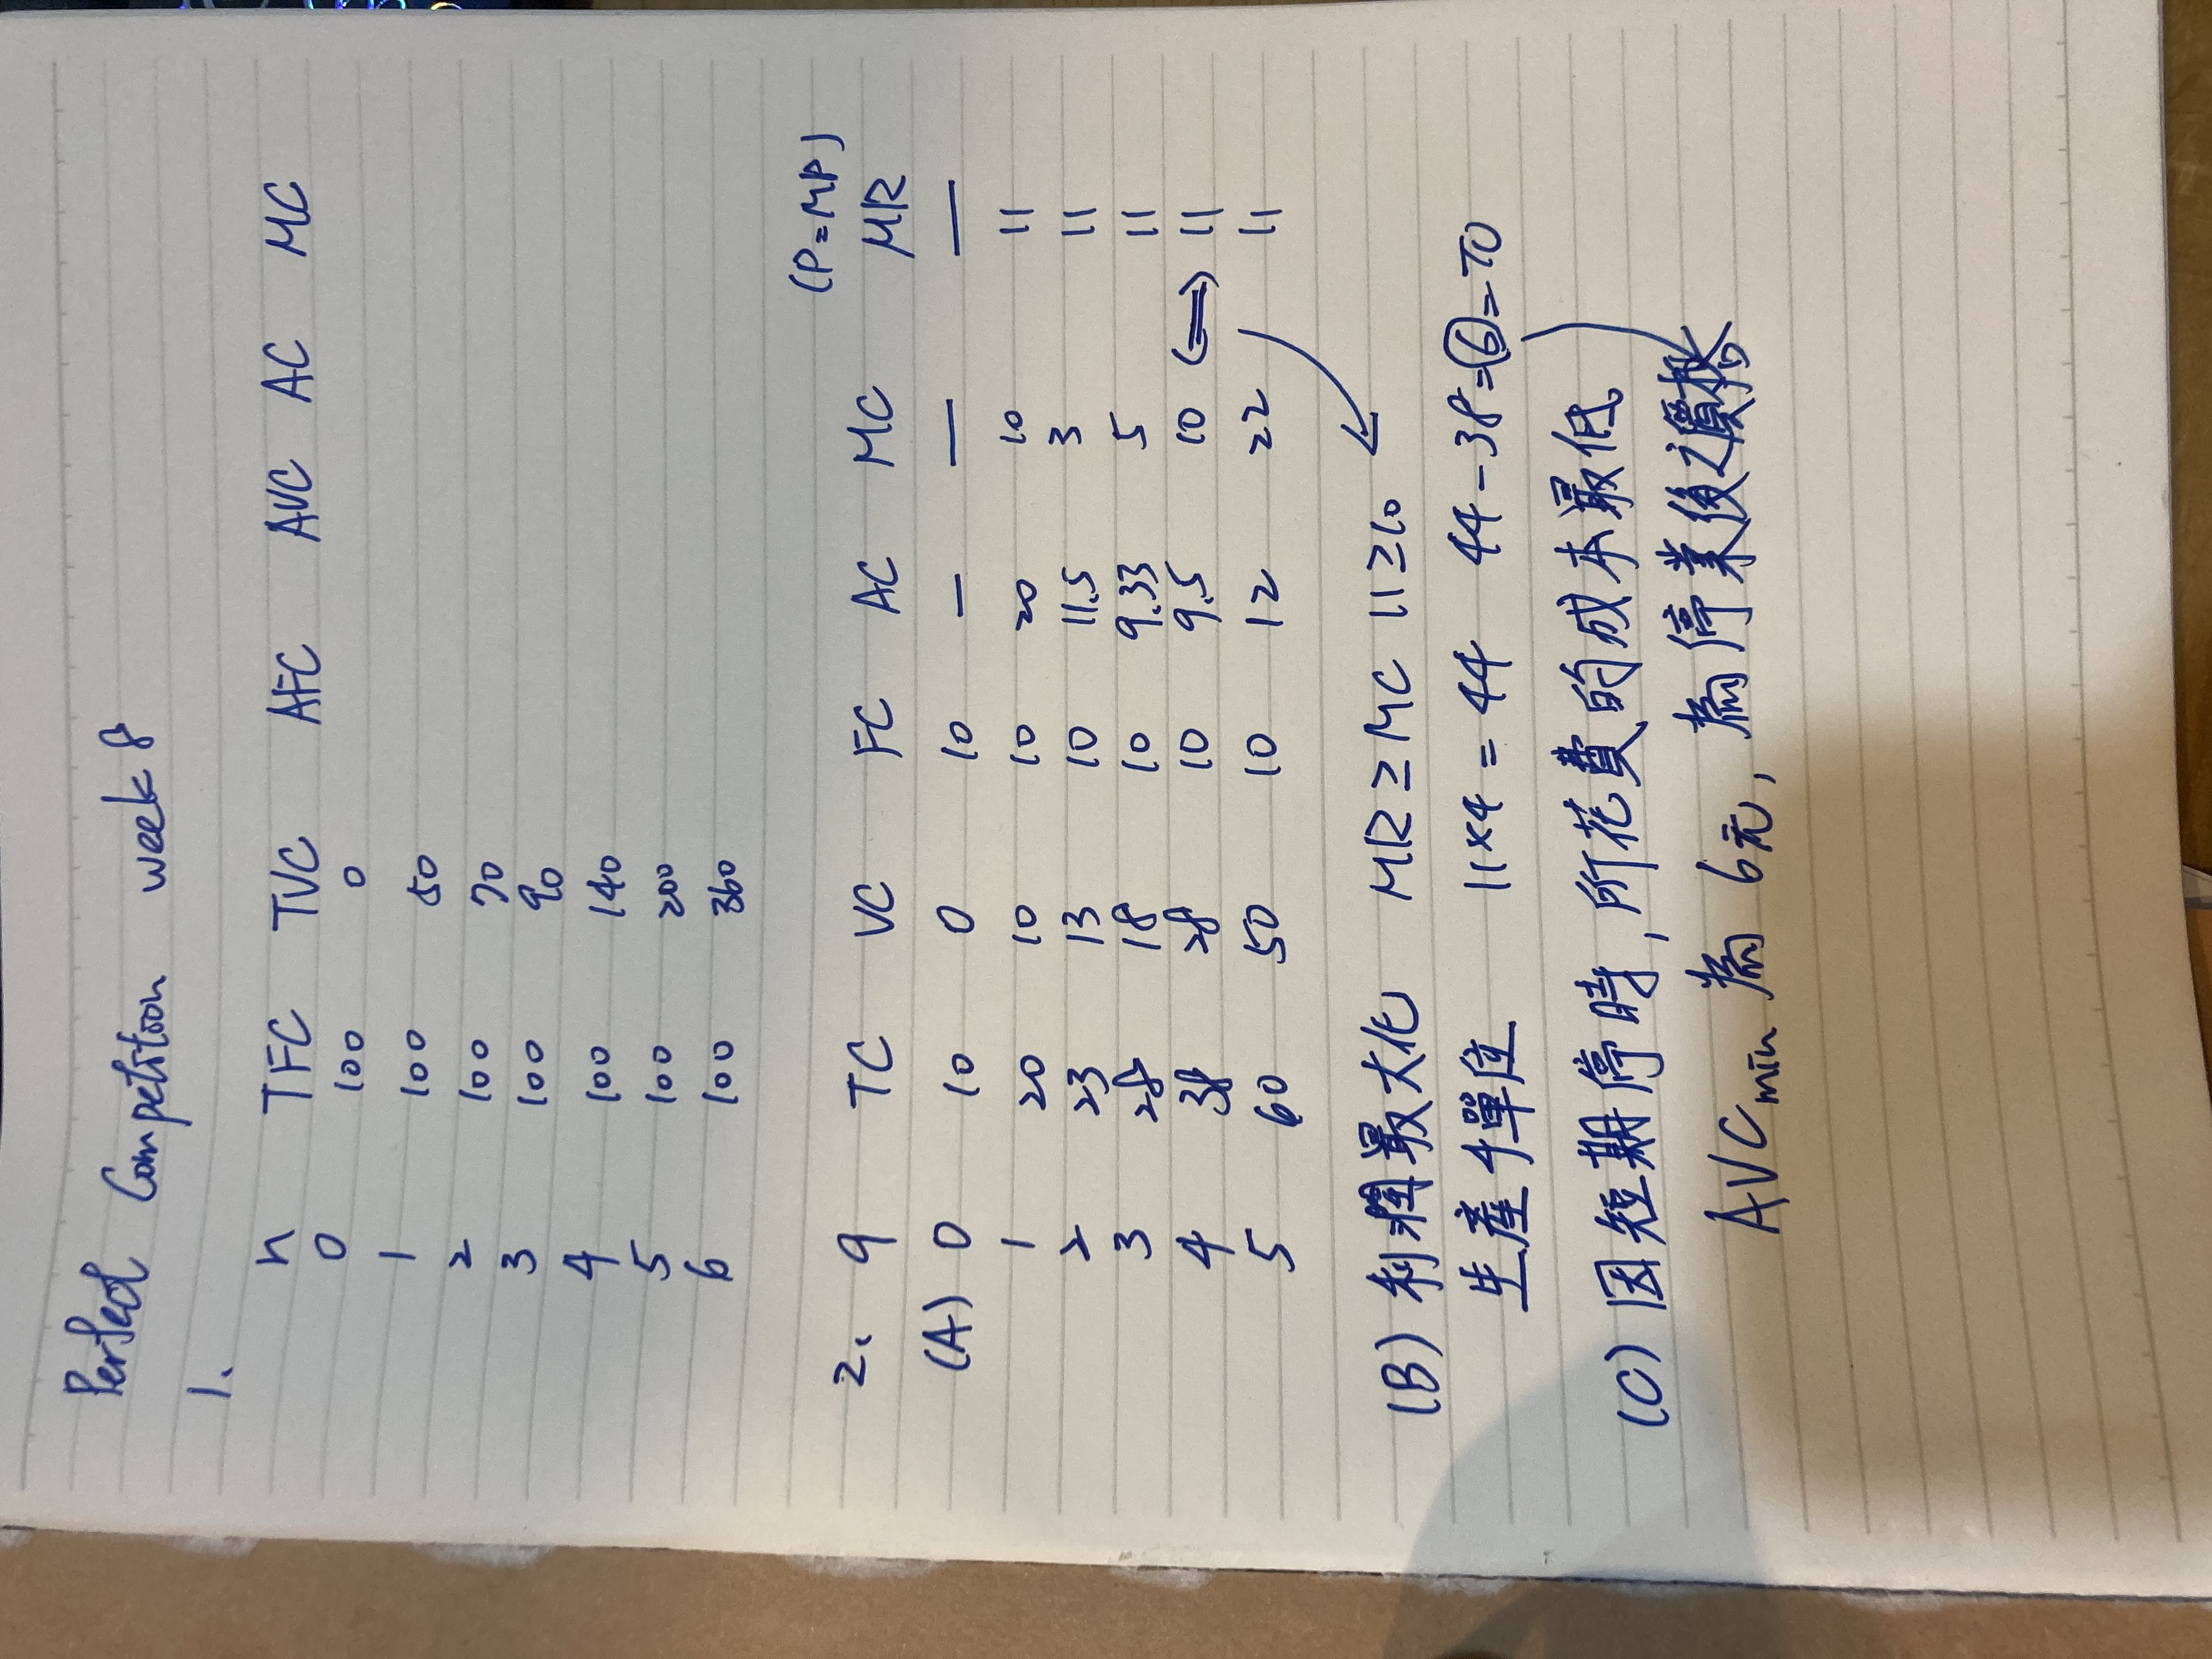 Perfect Competition week 8
1.
n TFC TVC AFC AVC AC MC
0 100 0
1 100 50
2 100 70
3 100 90
4 100 140
5 100 200
6 100 360
(P=MP)
2. q TC VC FC AC MC MR
(A) 0 10 0 10 — — —
1 20 10 10 20 10 11
2 23 13 10 11.5 3 11
3 28 18 10 9.33 5 11
4 38 28 10 9.5 10 ⟺ 11
5 60 50 10 12 22 11
(B) 利潤最大化 MR ≥ MC 11≥10
生產4單位 11×4 = 44 44-38=6=π
(C) 因短期停時,所花費的成本最低
AVCmin 為 6元,為停業後之價格